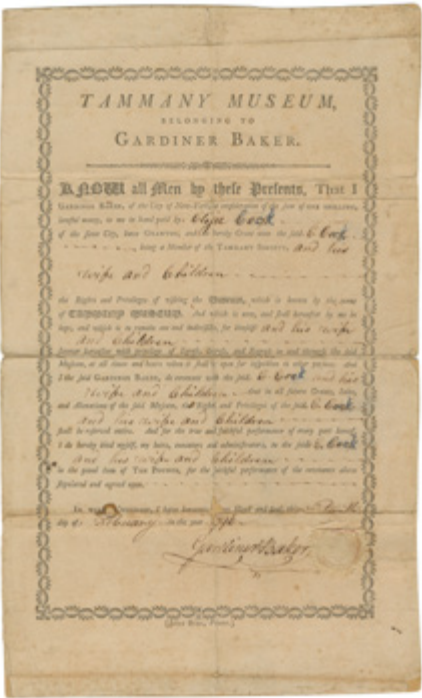 TAMMANY MUSEUM,
BELONGING TO
GARDINER BAKER.
KNOW all Men by these Presents, That I
GARDINER BAKER, of the City of New-York in consideration of the sum of ONE SHILLING,
lawful money, to me in hand paid by Elijah Cock
of the same City, have GRANTED, and do hereby Grant unto the said E Cock
being a Member of the TAMMANY SOCIETY, and his
wife and Children
the Rights and Privileges of visiting the MUSEUM, which is known by the name
of TAMMANY MUSEUM. And which is now, and shall hereafter by me be
kept, and which is to remain one and indivisible, for himself and his wife
and Children
forever hereafter with privilege of Ingress, Egress, and Regress in and through the said
Museum, at all times and hours when it shall be open for inspection
I the said GARDINER BAKER, do covenant with the said E Cock and his
wife and Children that in all future Grants, Sales,
and Alienations of the said Museum, the Right and Privileges of the said E Cock
and his wife and Children
shall be reserved entire. And for the true and faithful performance of every part hereof,
I do hereby bind myself, my heirs, executors and administrators, to the said E Cock
and his wife and Children
in the penal sum of TEN POUNDS, for the faithful performance of the covenants above
stipulated and agreed upon.
In witness whereof, I have hereunto Hand and Seal this Tenth
day of February in the year
Gardiner Baker